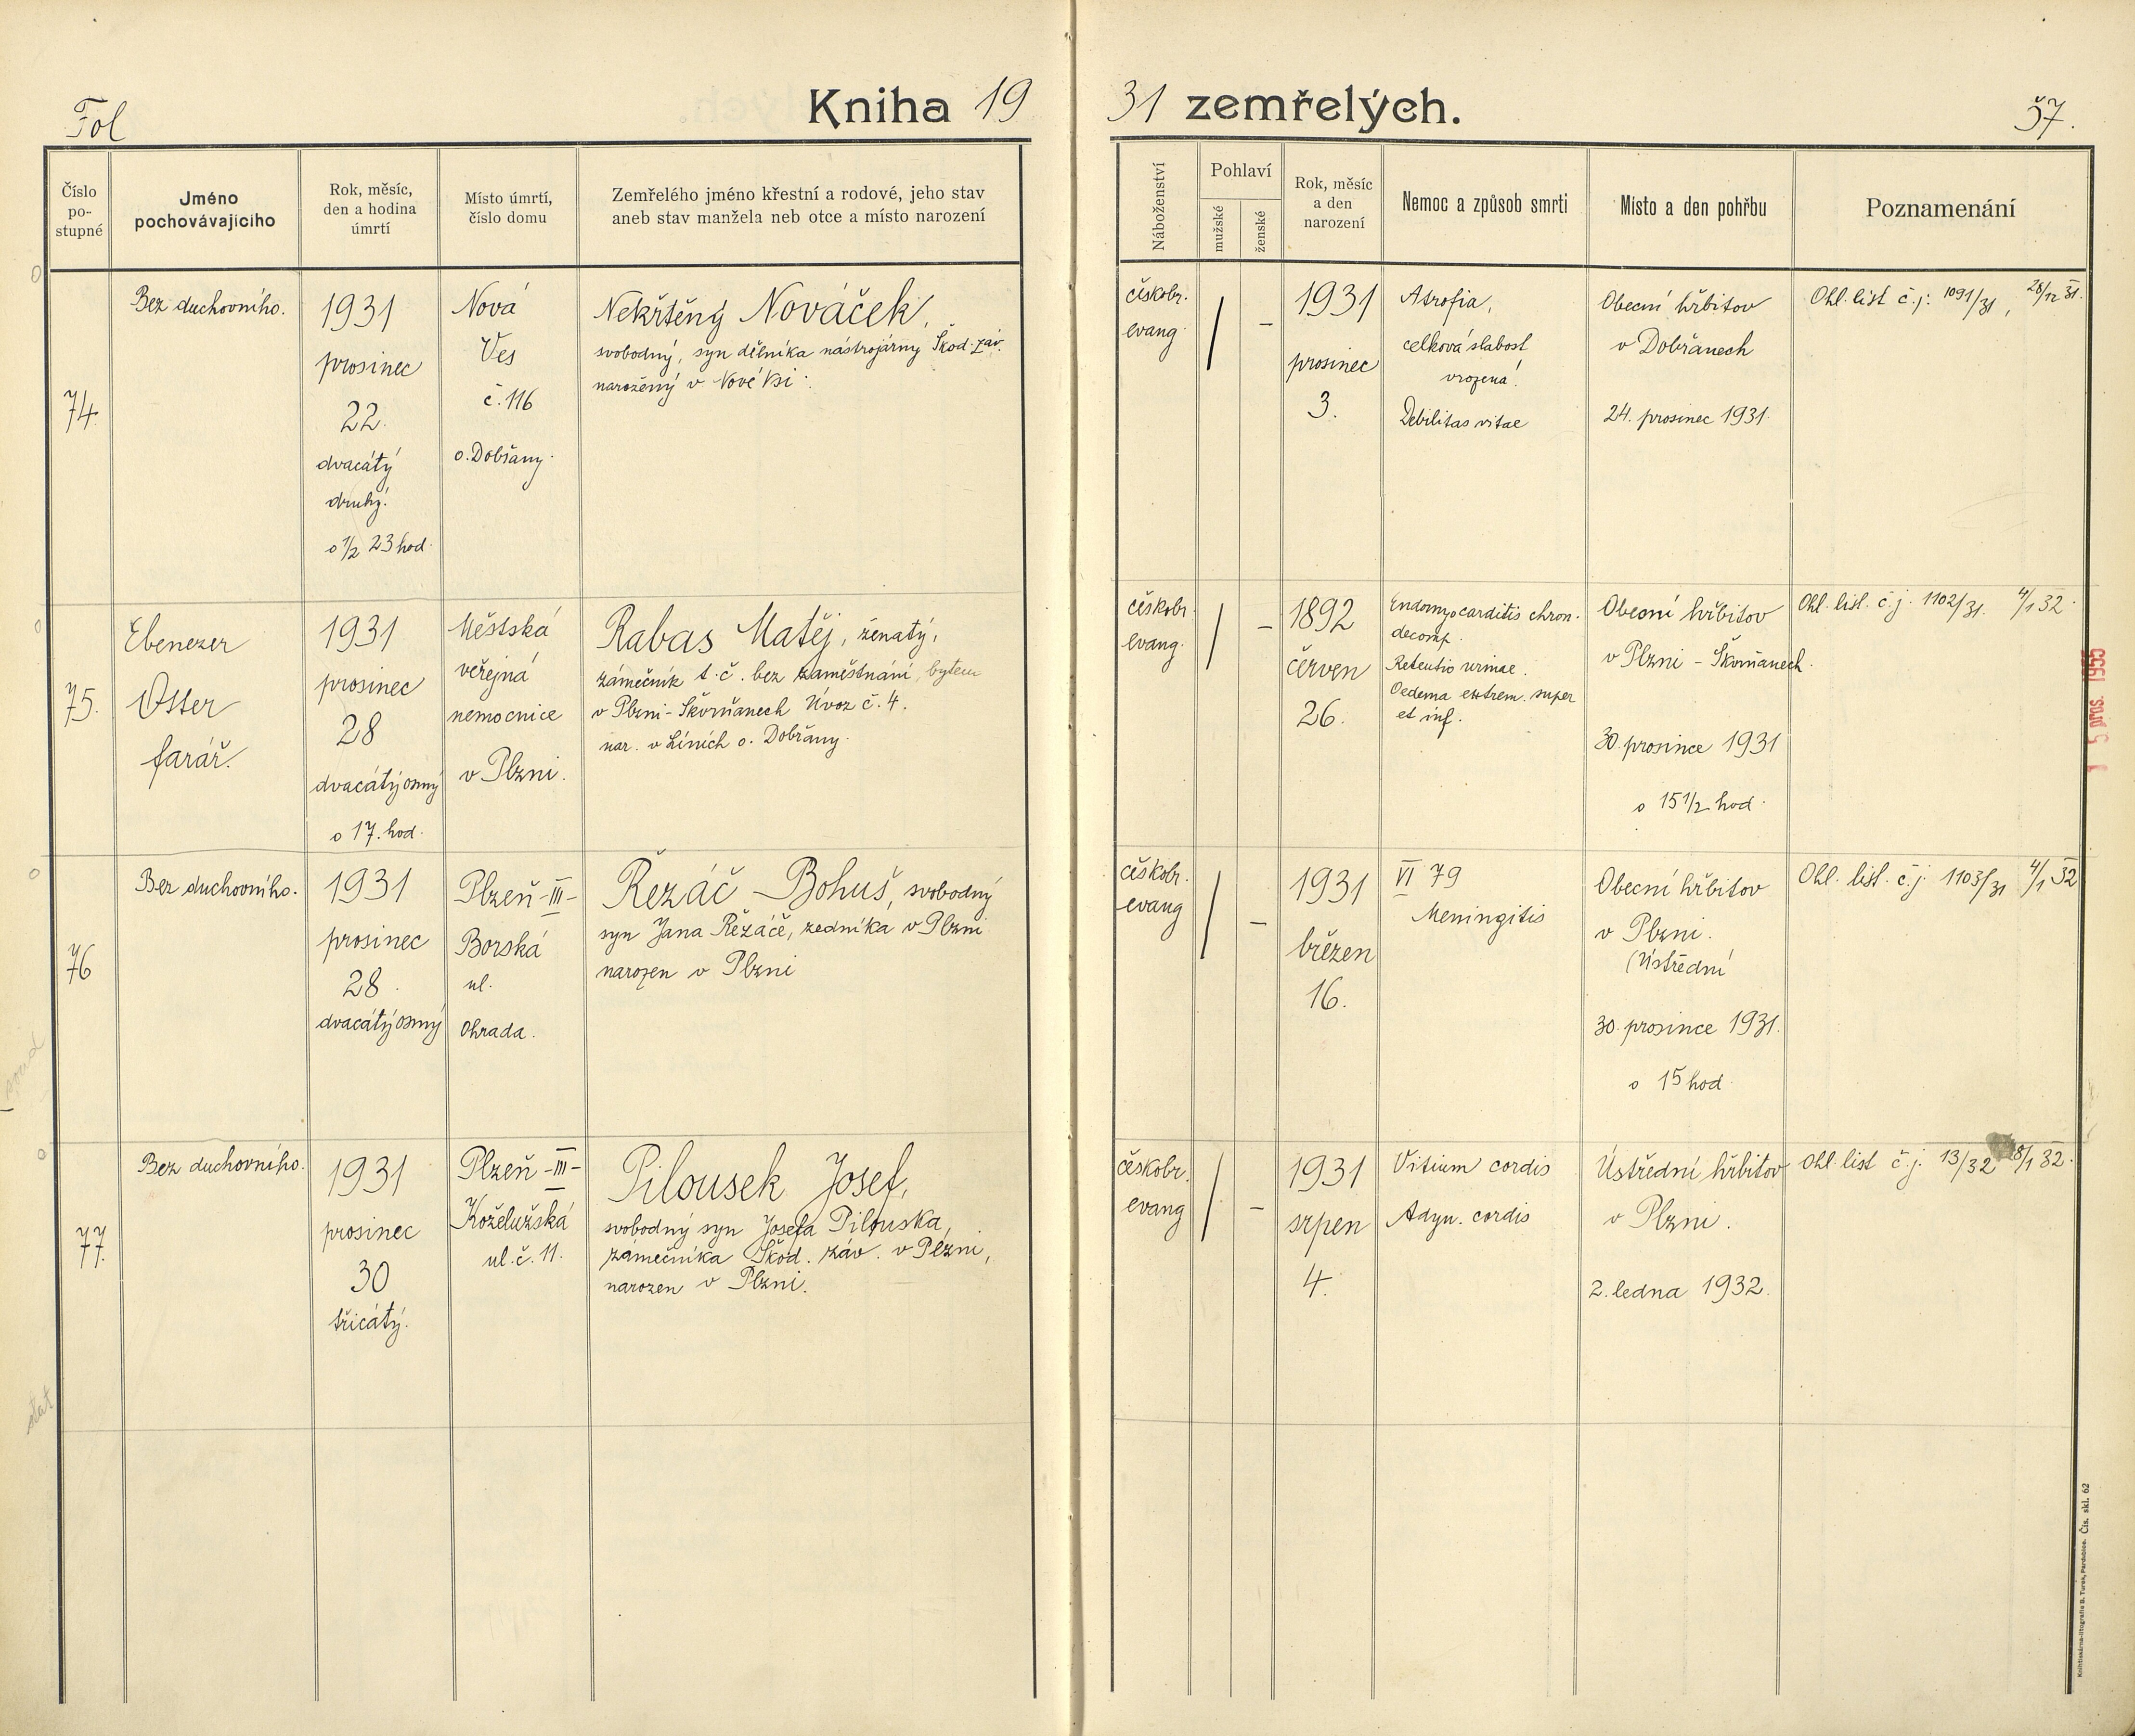 Fol
Kniha 19
31 zemřelých.
57.
Číslo
po-
stupné
Jméno
pochovávajícího
Rok, měsíc,
den a hodina
úmrtí
Místo úmrtí,
číslo domu
Zemřelého jméno křestní a rodové, jeho stav
aneb stav manžela neb otce a místo narození
Náboženství
Pohlaví
mužské
ženské
Rok, měsíc
a den
narození
Nemoc a způsob smrti
Místo a den pohřbu
Poznamenání
74.
Bez duchovního.
1931
prosinec
22.
dvacátý
druhý.
o 1/2 23 hod.
Nová
Ves
č. 116
o. Dobřany.
Nekřtěný Nováček,
svobodný, syn dělníka nástrojárny Škod. záv.
narozený v Nové Vsi.
českobr.
evang.
/
–
1931
prosinec
3.
Atrofia,
celková slabost
vrozená!
Debilitas vitae
Obecní hřbitov
v Dobřanech
24. prosinec 1931.
Ohl. list č. j. 1091/31, 28/12 31.
75.
Ebenezer
Otter
farář.
1931
prosinec
28
dvacátýosmý
o 17. hod.
Městská
veřejná
nemocnice
v Plzni.
Rabas Matěj, ženatý,
zámečník t. č. bez zaměstnání, bytem
v Plzni-Škvrňanech Úvoz č. 4.
nar. v Líních o. Dobřany.
českobr.
evang.
/
–
1892
červen
26.
Endomyocarditis chron.
decomp.
Retentio urinae.
Oedema extrem. super
et inf.
Obecní hřbitov
v Plzni - Škvrňanech.
30. prosince 1931
o 15 1/2 hod.
Ohl. list. č. j. 1102/31. 4/1 32.
76
Bez duchovního.
1931
prosinec
28.
dvacátýosmý
Plzeň-III-
Borská
ul.
Ohrada.
Řezáč Bohuš, svobodný
syn Jana Řezáče, zedníka v Plzni
narozen v Plzni
českobr.
evang
/
–
1931
březen
16.
VI 79
Meningitis
Obecní hřbitov
v Plzni.
(Ústřední
30. prosince 1931.
o 15 hod.
Ohl. list. č. j. 1103/31 4/1 32
77.
Bez duchovního.
1931
prosinec
30
třicátý.
Plzeň-III-
Koželužská
ul. č. 11.
Pilousek Josef,
svobodný syn Josefa Pilouska,
zámečníka Škod. záv. v Plzni,
narozen v Plzni.
českobr.
evang
/
–
1931
srpen
4.
Vitium cordis
Adyn. cordis
Ústřední hřbitov
v Plzni.
2. ledna 1932.
Ohl. list č. j. 13/32 8/1 32.
5 pros. 1955
Knihtiskárna-litografie B. Turek, Pardubice. Čís. skl. 62